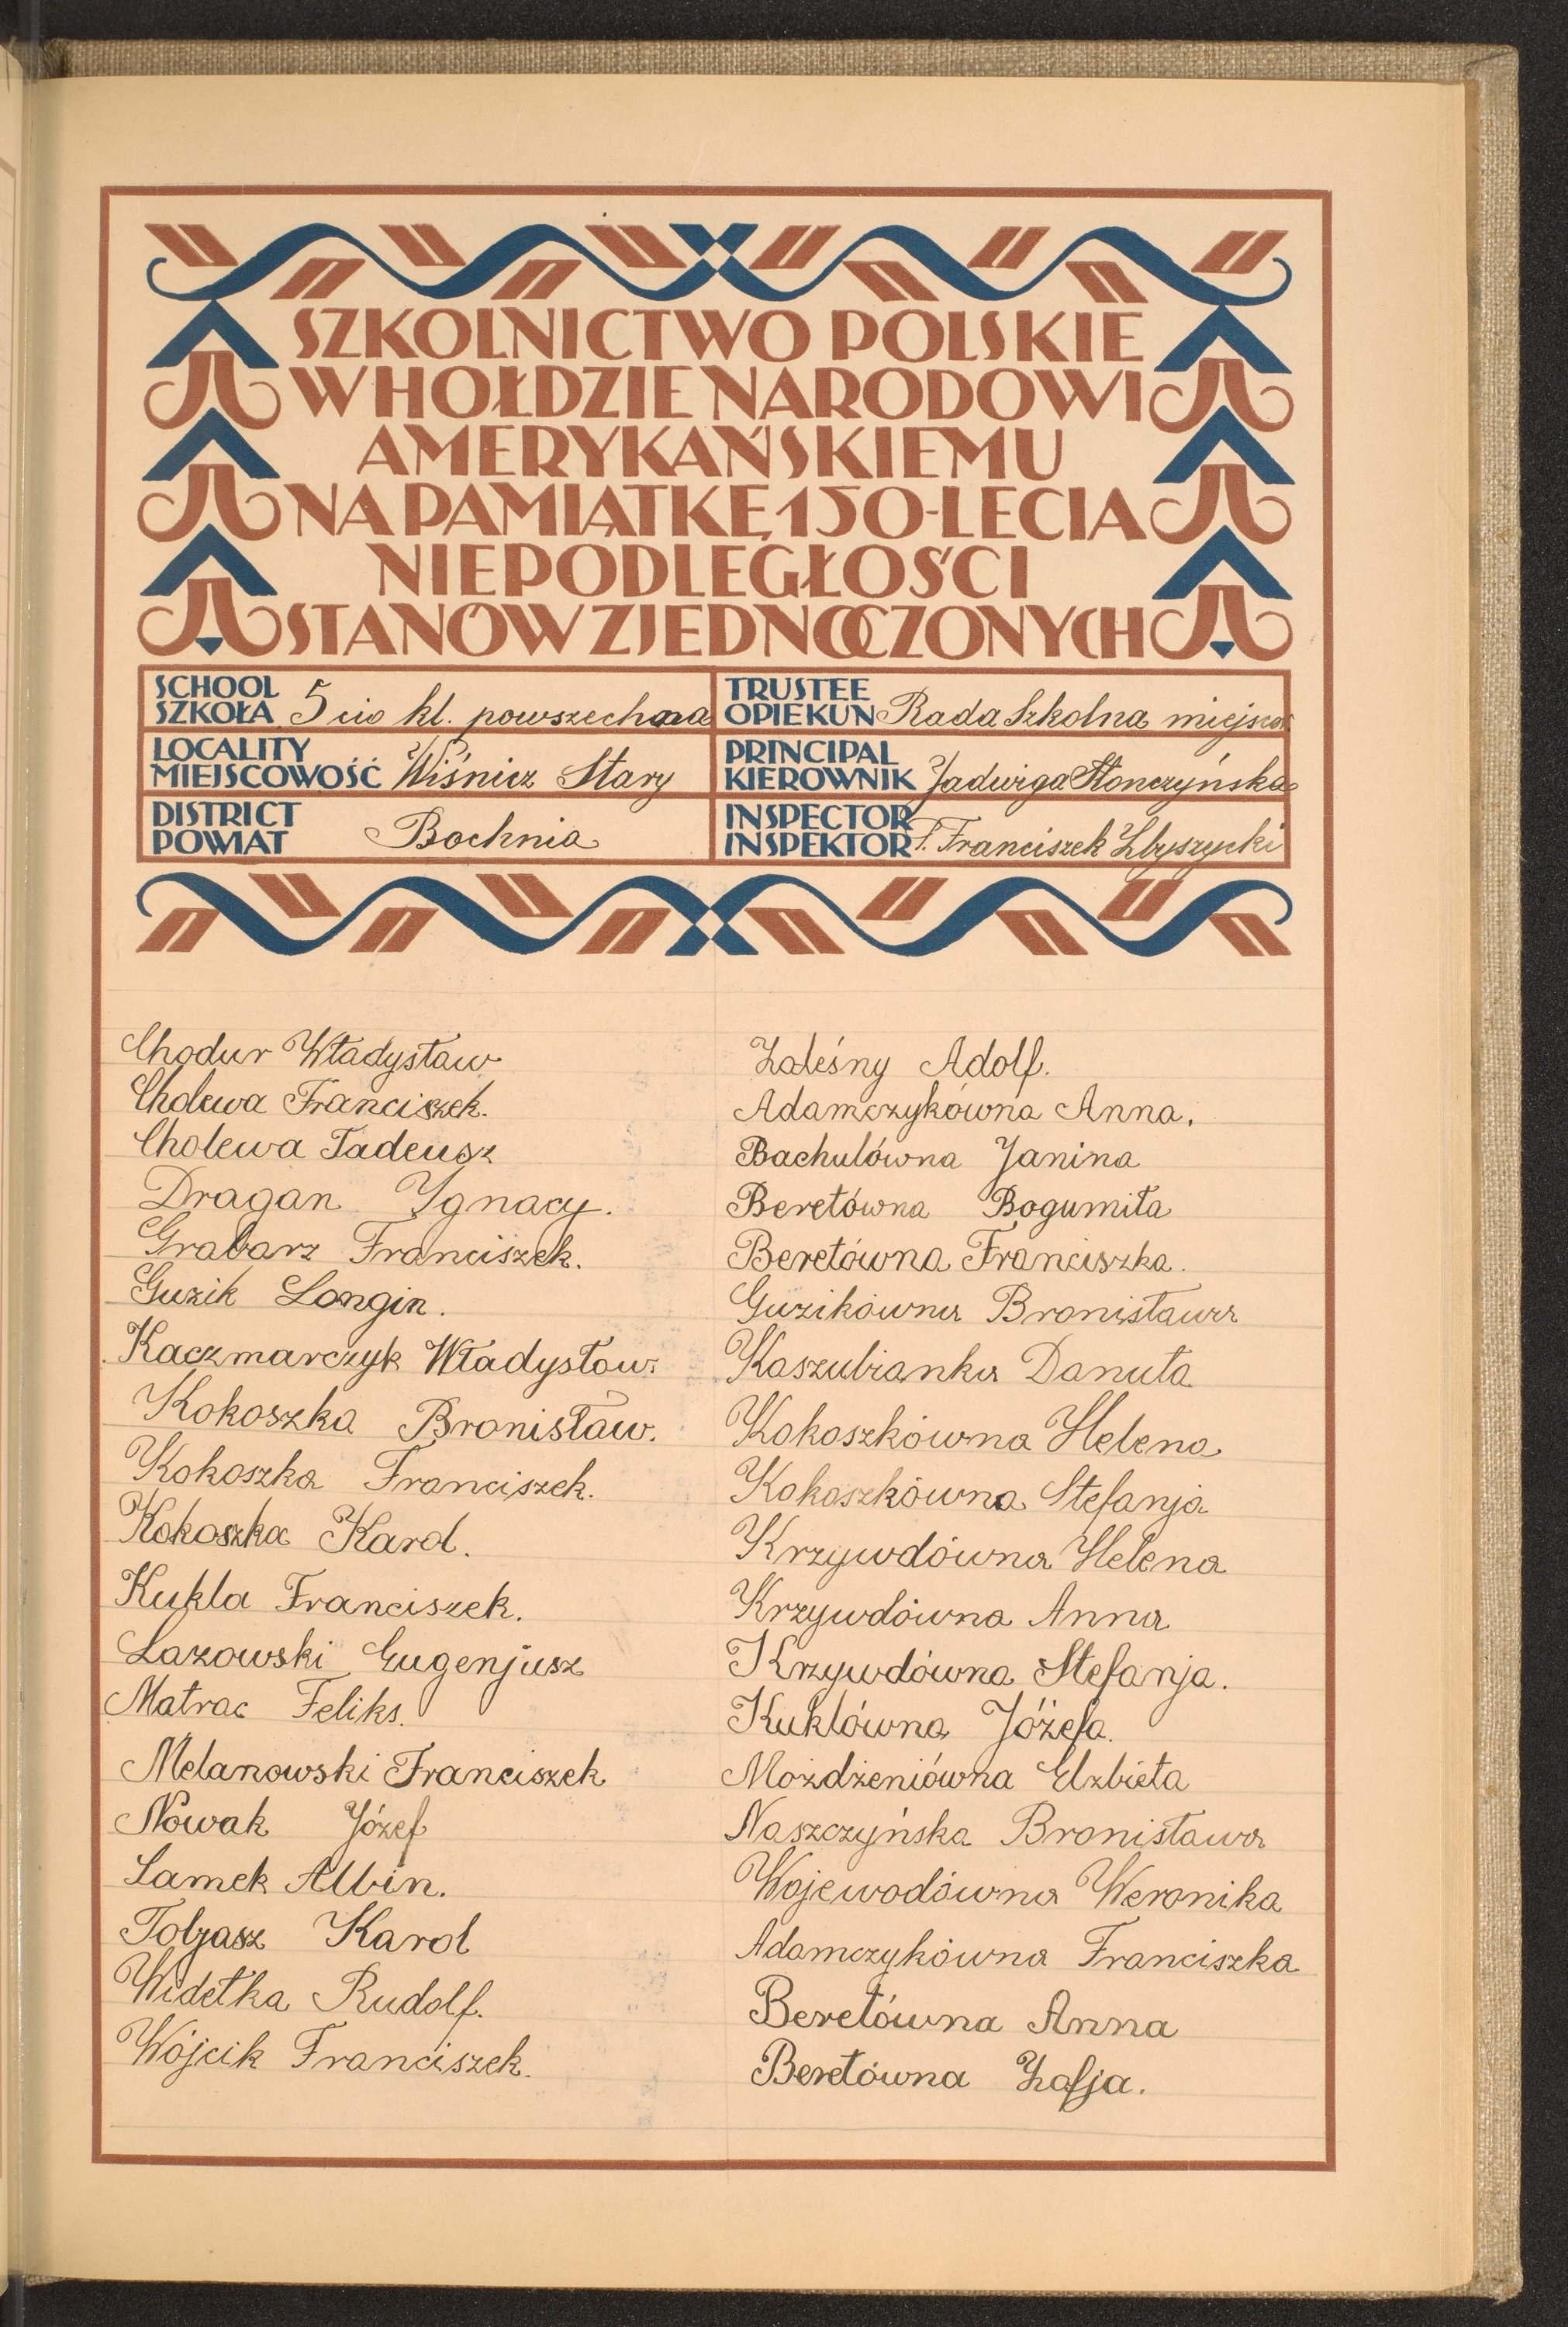 SZKOLNICTWO POLSKIE
W HOŁDZIE NARODOWI
AMERYKAŃSKIEMU
NA PAMIĄTKĘ 150-LECIA
NIEPODLEGŁOŚCI
STANÓW ZJEDNOCZONYCH
SCHOOL
SZKOŁA 5 cio kl. powszechna
LOCALITY
MIEJSCOWOŚĆ Wiśnicz Stary
DISTRICT
POWIAT Bochnia
TRUSTEE
OPIEKUN Rada Szkolna miejscow.
PRINCIPAL
KIEROWNIK Jadwiga Słonczyńska
INSPECTOR
INSPEKTOR F. Franciszek Zbyszycki
Chodur Władysław
Cholewa Franciszek.
Cholewa Tadeusz
Dragan Ygnacy.
Grabarz Franciszek.
Guzik Longin.
Kaczmarczyk Władysław.
Kokoszka Bronisław.
Kokoszka Franciszek.
Kokoszka Karol.
Kukla Franciszek.
Lazowski Eugenjusz
Matrac Feliks.
Melanowski Franciszek
Nowak Józef
Samek Albin.
Tobjasz Karol
Widełka Rudolf.
Wójcik Franciszek.
Zaleśny Adolf.
Adamczykówna Anna.
Bachulówna Janina
Beretówna Bogumiła
Beretówna Franciszka.
Guzikówna Bronisława
Kaszubianka Danuta
Kokoszkówna Helena
Kokoszkówna Stefanja
Krzywdówna Helena
Krzywdówna Anna
Krzywdówna Stefanja.
Kuklówna Józefa.
Możdżeniówna Elżbieta
Naszczyńska Bronisława
Wojewodówna Weronika
Adamczykówna Franciszka
Beretówna Anna
Beretówna Zofja.